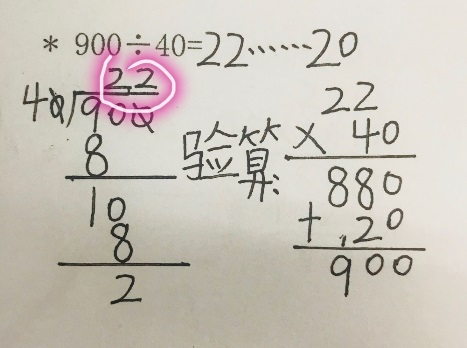 * 900÷40=22……20
22
40)900
8
10
8
2
验算:
22
× 40
880
+ 20
900